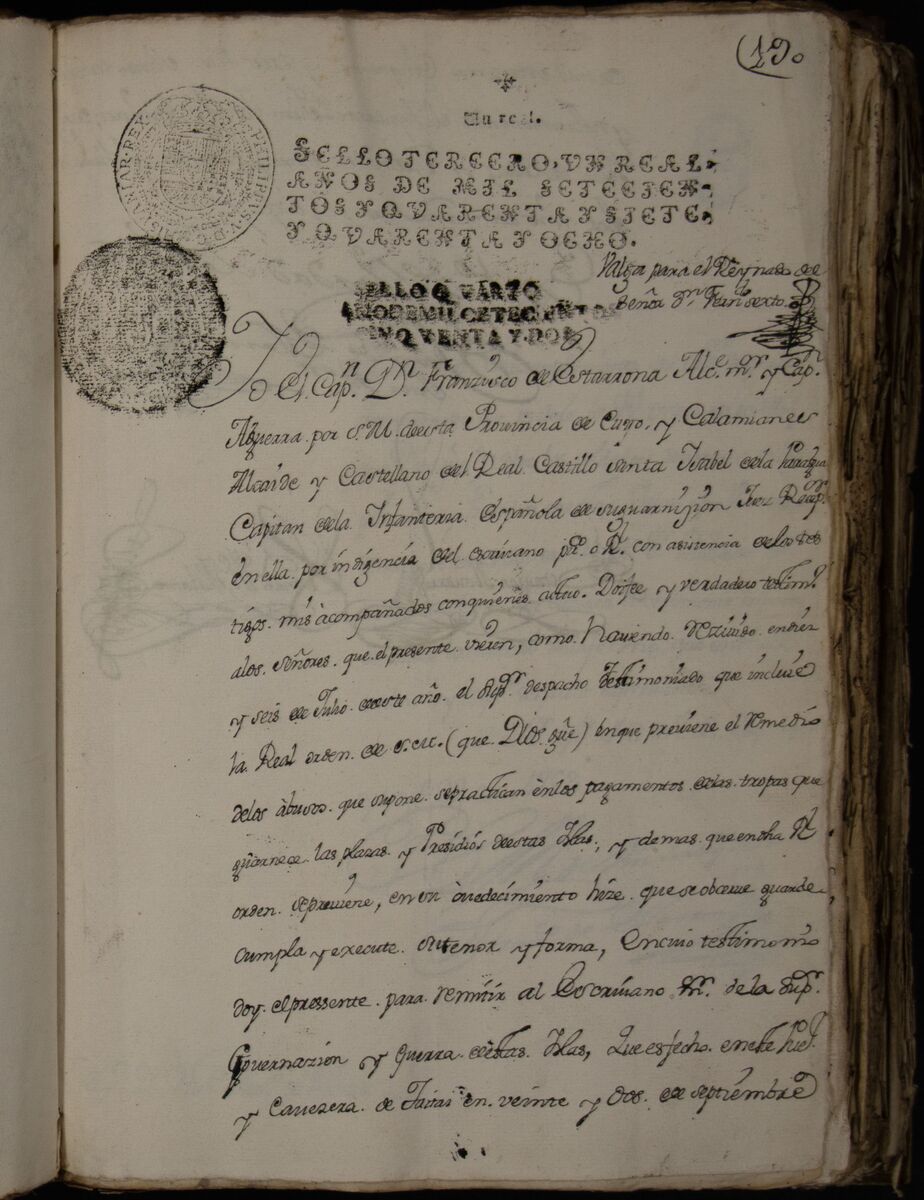 19.
Un real.
SELLO TERCERO, UN REAL,
AÑOS DE MIL SETECIEN-
TOS Y QVARENTA Y SIETE,
Y QVARENTA Y OCHO.
PHILIPPVS V D G HISPANIAR REX
Valga para el Reynado de
Señor Dn. Fernd.o sexto.
SELLO QVARTO
AÑO DE MIL CETECIENTOS
CINQVENTA Y DOS
Yo El Capn. Dn. Franzisco de Estarrona Alce. mor. y Capn.
Aguerra por S.M. de esta Provincia de Cuyo, y Calamianes
Alcaide y Castellano del Real Castillo Santa Isabel de la Paragua
Capitan de la Infanteria Española de su guarnision Juez Recepor.
en ella por indigencia del escrivano puco. o Rl. con asistencia de los tes
tigos mis àcompañados con quienes actuo. Doi fee y verdadero testimo
alos Señores que el presente vieren, como haviendo recivido en diez
y seis de Julio de este año el supor. despacho testimoniado que incluie
la Real orden de S.M. (que Dios gue) en que previene el remedio
delos àbusos que supone se practican èn los pagamentos de las tropas que
guarnece las plazas y Presidios de estas Islas, y demas que en dha Rl
orden se previene, en su òvedecimiento hize que se observe guarde
cumpla y execute su tenor y forma, En cuio testimonio
doy el pressente para remitir al Escrivano mor. de la supor.
Governazion y Guerra de estas Islas, Que es fecho en este Puer.
y Cavezera de Taitai en veinte y dos de septiembre